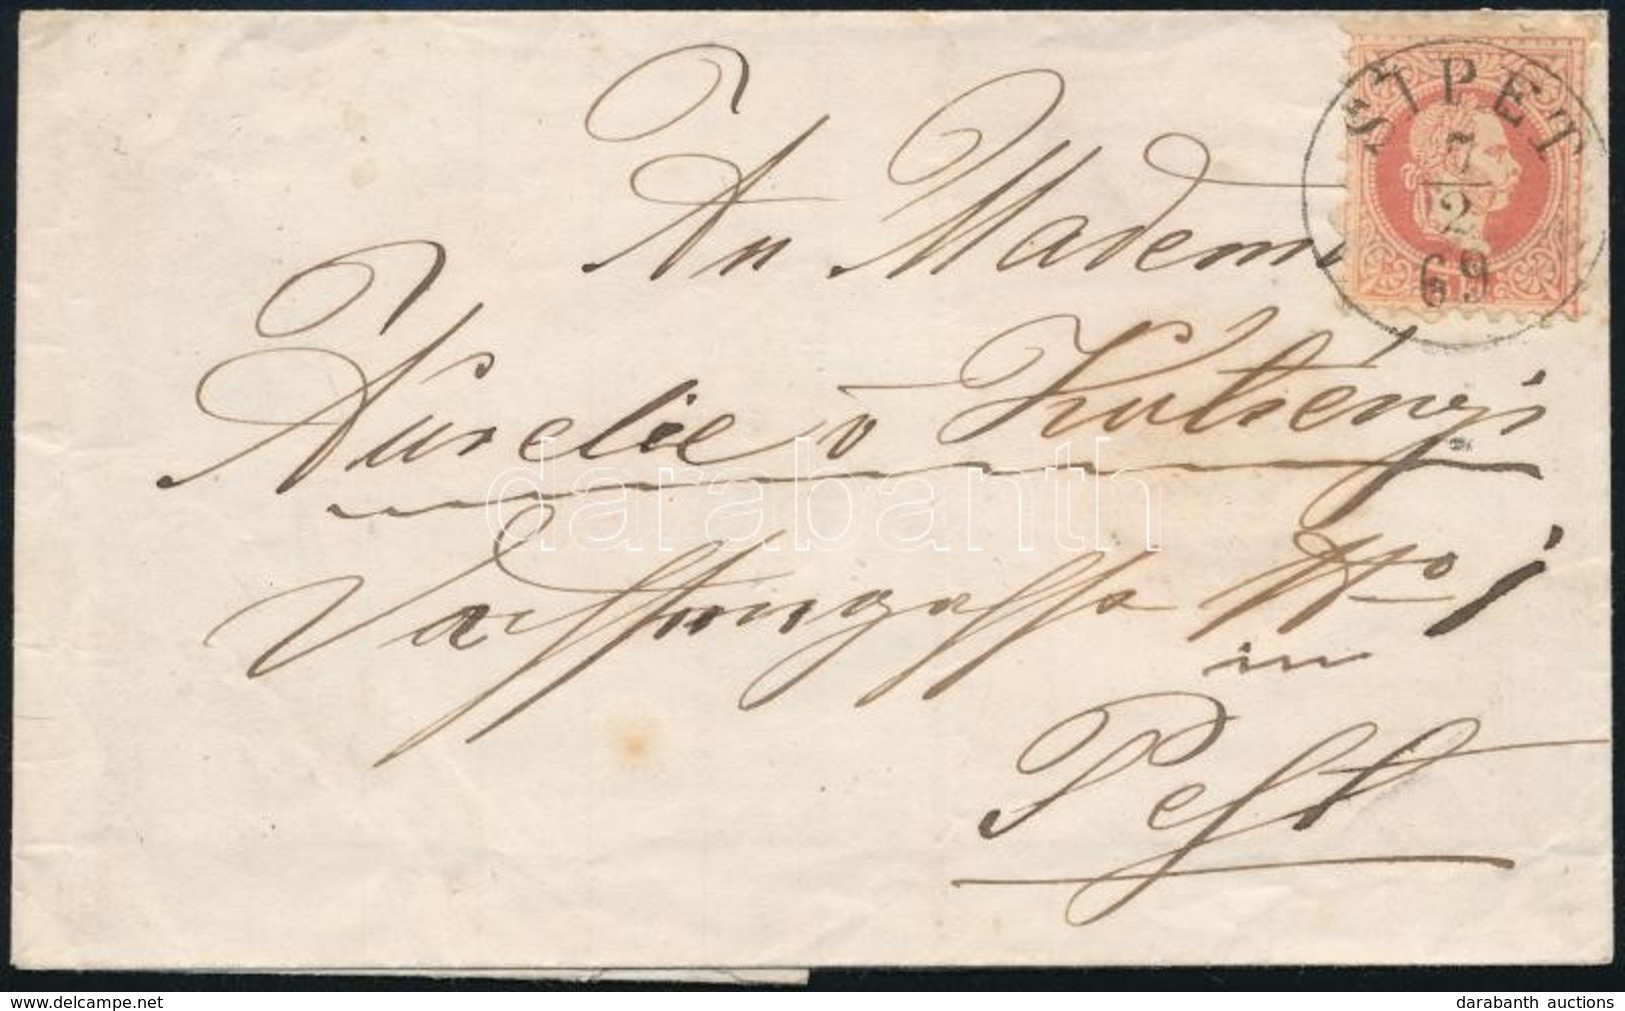 SIPET
7
2
69
An Madem
Aurelie v
darabanth
No 1
in
Pest
www.delcampe.net
darabanth auctions